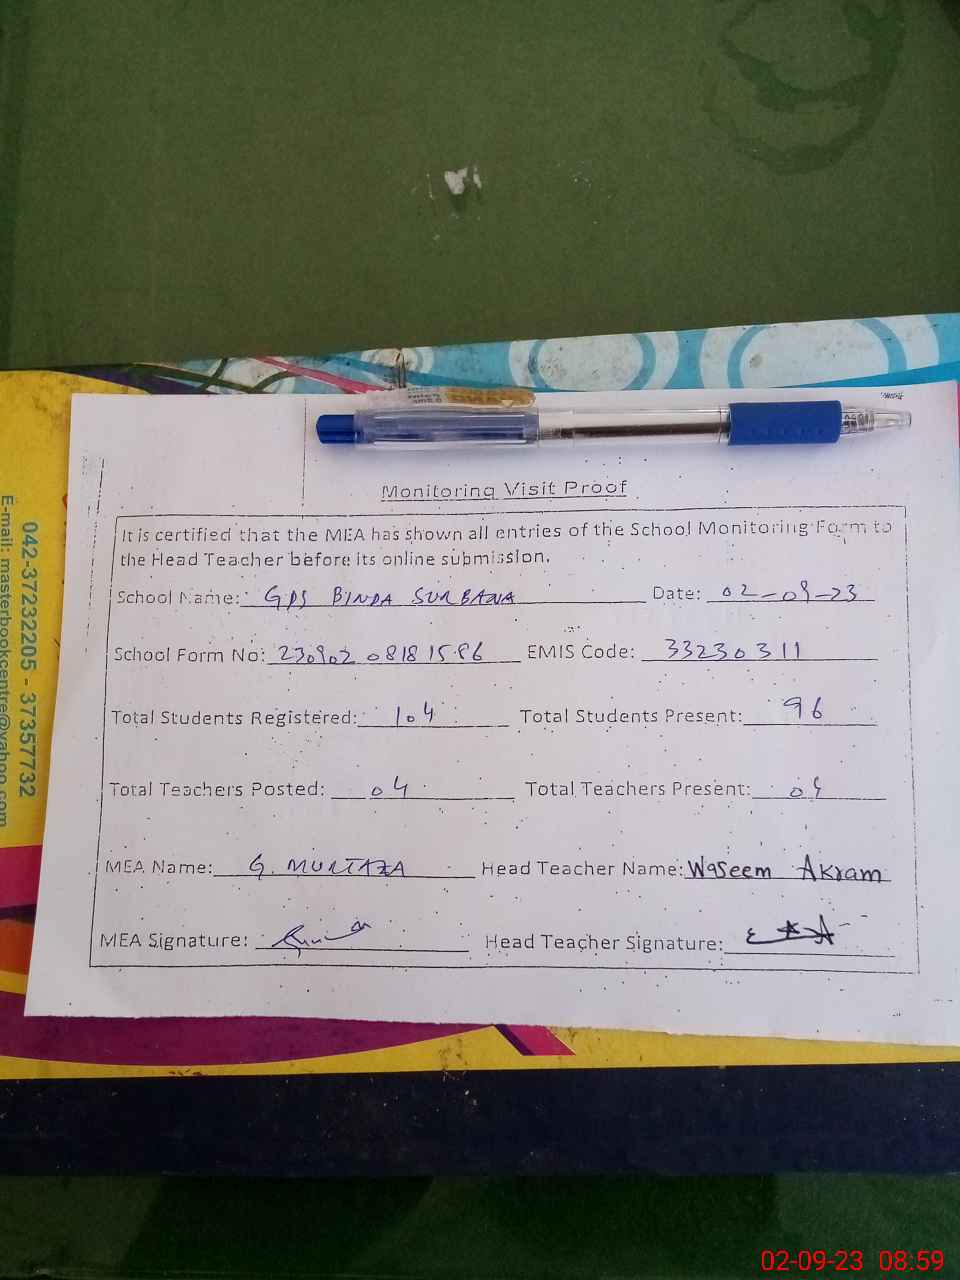 Monitoring Visit Proof
It is certified that the MEA has shown all entries of the School Monitoring Form to
the Head Teacher before its online submission.
School Name: GPS BINDA SURBANA Date: 02-09-23
School Form No: 230902 0818 1586 EMIS Code: 33230311
Total Students Registered: 104 Total Students Present: 96
Total Teachers Posted: 04 Total Teachers Present: 04
MEA Name: G. MURTAZA Head Teacher Name: Waseem Akram
MEA Signature: Head Teacher Signature:
042-37232205 - 37357732
E-mail: masterbookcentre@yahoo.com
02-09-23 08:59